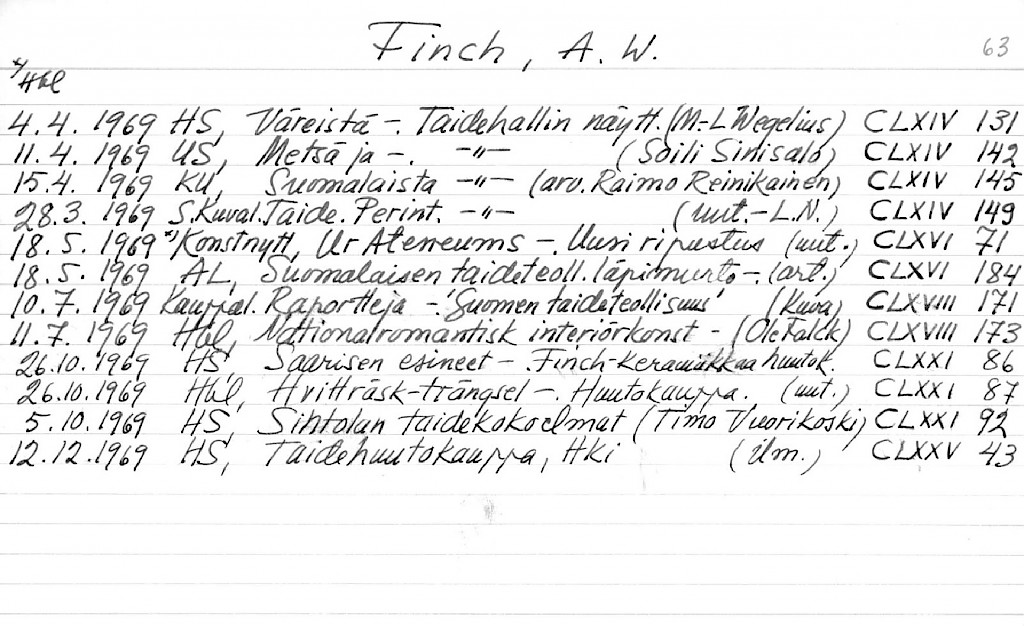 Finch, A. W.
63
*/Hbl
4.4. 1969 HS, Väreistä -. Taidehallin näytt. (M.-L Wegelius) CLXIV 131
11.4. 1969 US, Metsä ja -. -"- (Soili Sinisalo) CLXIV 142
15.4. 1969 KU, Suomalaista -"- (arv. Raimo Reinikainen) CLXIV 145
28.3. 1969 S.Kuval. Taide. Perint. -"- (uut. - L.N.) CLXIV 149
18.5. 1969 */Konstnytt, Ur Ateneums -. Uusi ripustus (uut.) CLXVI 71
18.5. 1969 AL, Suomalaisen taideteoll. läpimurto - (art.) CLXVI 184
10.7. 1969 Kauppal. Raportteja - 'Suomen taideteollisuus' (Kuva) CLXVIII 171
11.7. 1969 Hbl, Nationalromantisk interiörkonst - (Ole Falck) CLXVIII 173
26.10. 1969 HS, Saarisen esineet - Finch-keramiikkaa huutok. CLXXI 86
26.10. 1969 Hbl, Hvitträsk-trängsel -. Huutokauppa. (uut.) CLXXI 87
5.10. 1969 HS, Sihtolan taidekokoelmat (Timo Vuorikoski) CLXXI 92
12.12.1969 HS, Taidehuutokauppa, Hki (ilm.) CLXXV 43